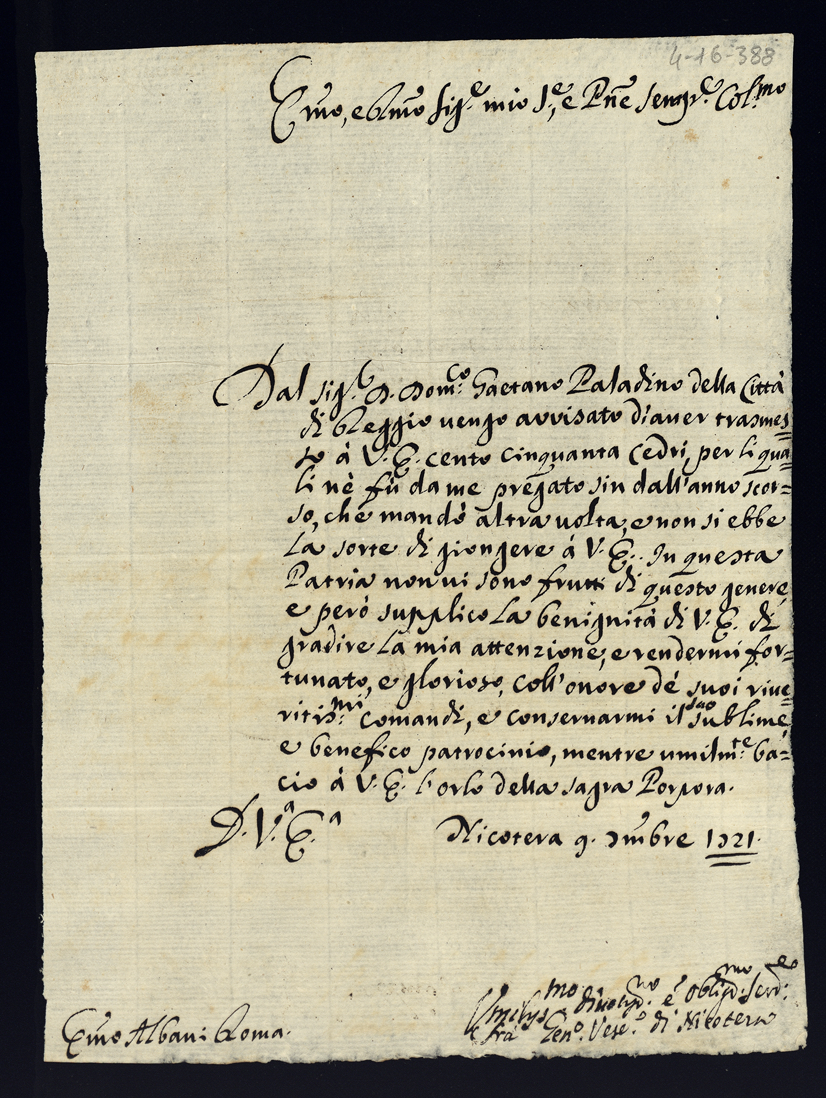 4-16-388
Emo, e Rmo Sig.re mio S.re, e Pne Sempr.e Col.mo
Dal Sig.r D. Dom.co Gaetano Paladino della Città
di Reggio vengo avvisato d'aver trasmes=
so à V. E. cento cinquanta Cedri, per li qua=
li nè fù da me pregato sin dall'anno scor=
so, che mandò altra volta, e non si ebbe
la sorte di giongere à V. E. In questa
Patria non vi sono frutti di questo genere,
e però supplico la benignità di V. E. di
gradire la mia attenzione, e rendermi for=
tunato, e glorioso, coll'onore dè suoi rive=
ritis.mi comandi, e conservarmi il suo sublime,
e benefico patrocinio, mentre umilm.te ba=
cio à V. E. l'orlo della sagra Porpora.
D. V.a E.a
Nicotera 9. Xmbre 1721.
divotis.mo è oblig.mo
frà Vesc.o di Nicotera
Emo Albani Roma.